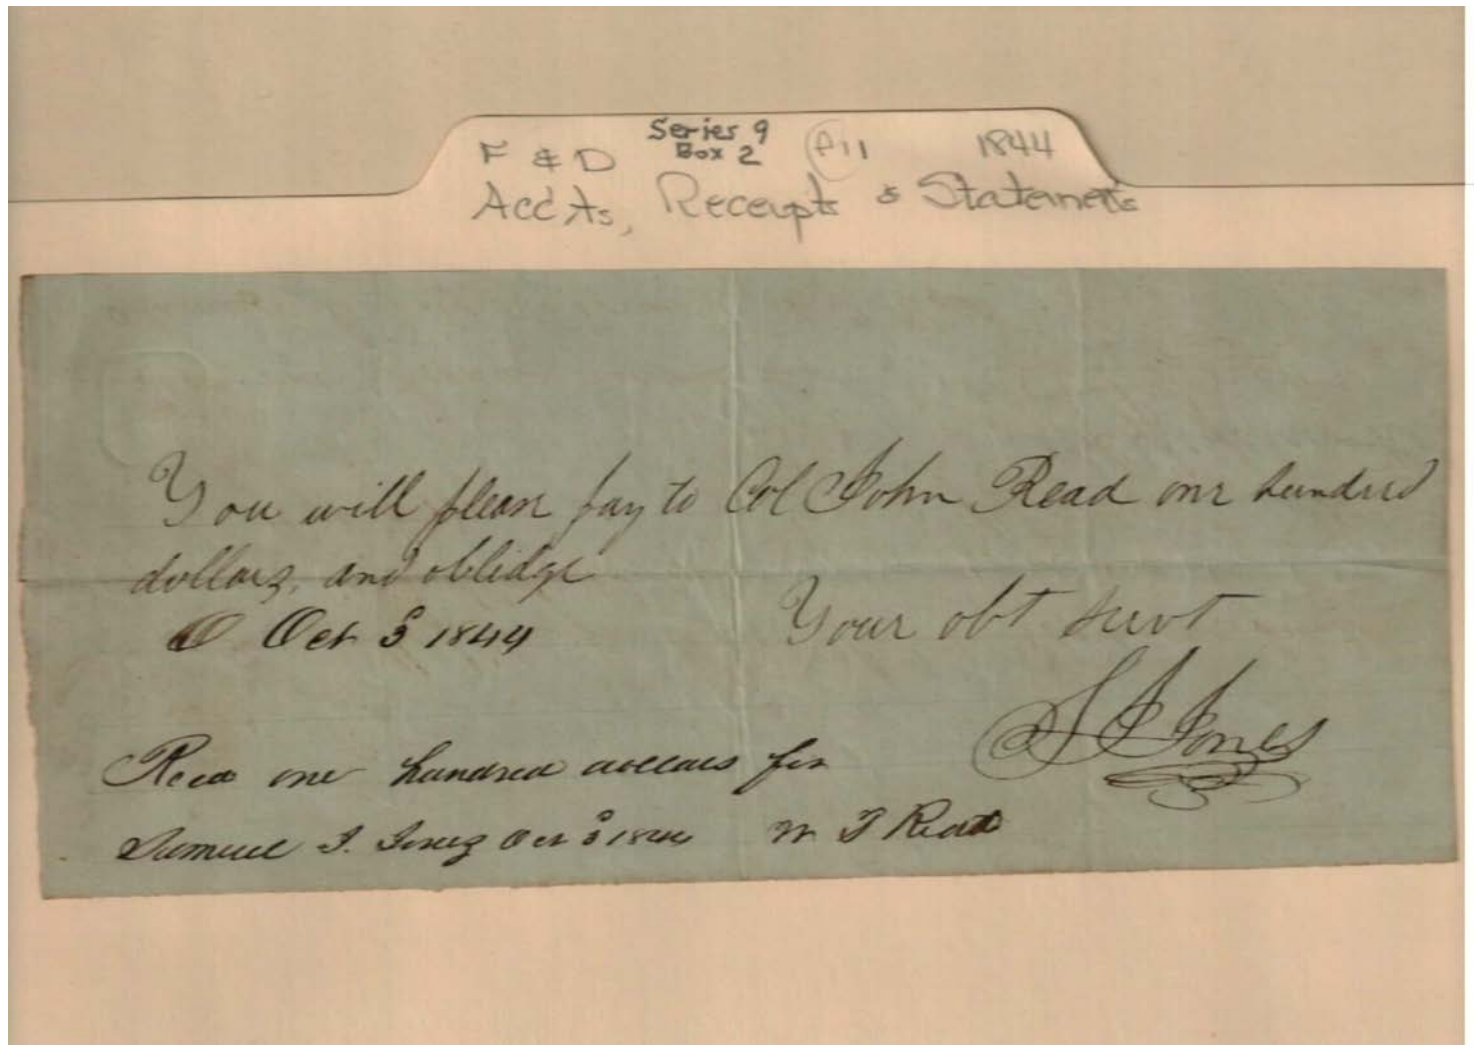 Series 9
F & D Box 2 P11 1844
Acc'ts, Receipts & Statements
You will please pay to Col John Read one hundred
dollars, and oblidge
Oct 3 1844 Your obt servt
S J Jones
Recd one hundred dollars for
Samuel J. Jones Oct 3 1844 W T Read